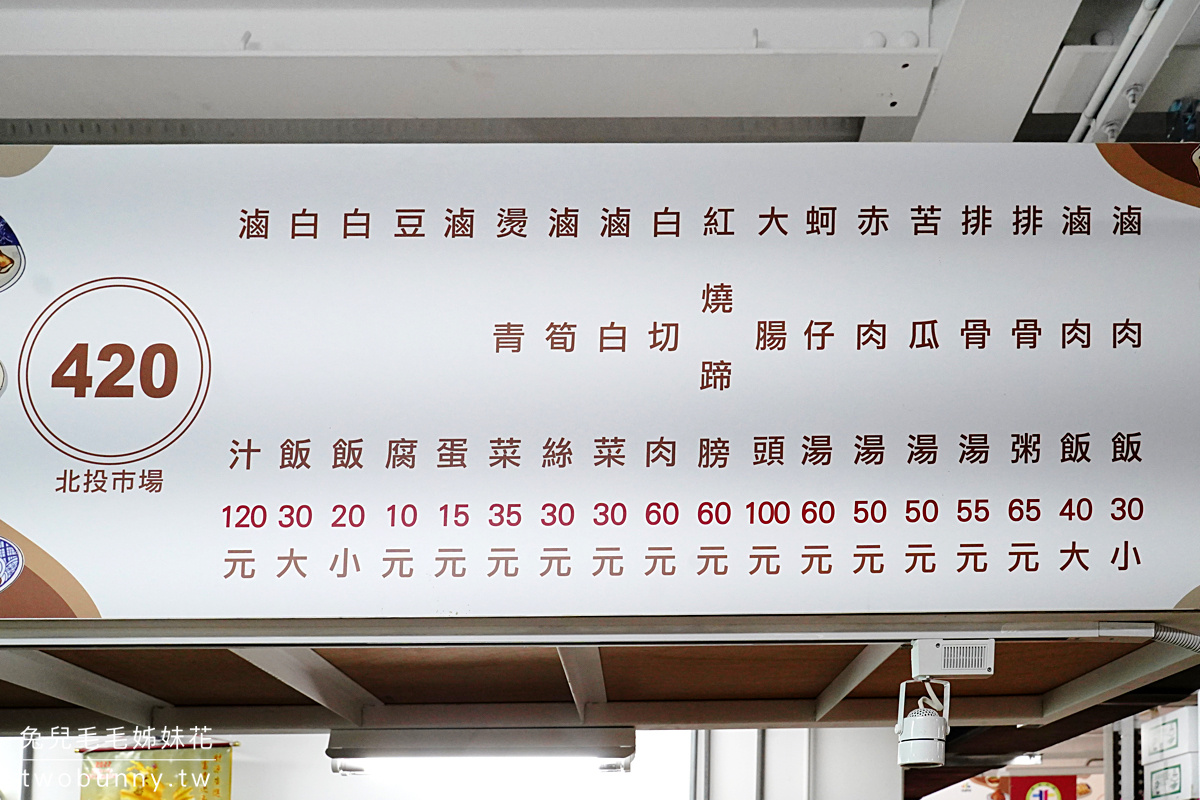 滷肉飯30小
滷肉飯40大
排骨粥65元
排骨湯55元
苦瓜湯50元
赤肉湯50元
蚵仔湯60元
大腸頭100元
紅燒蹄膀60元
白切肉60元
滷白菜30元
滷筍絲30元
燙青菜35元
滷蛋15元
豆腐10元
白飯20小
白飯30大
滷汁120元
420
北投市場
兔兒毛毛姊妹花
twobunny.tw